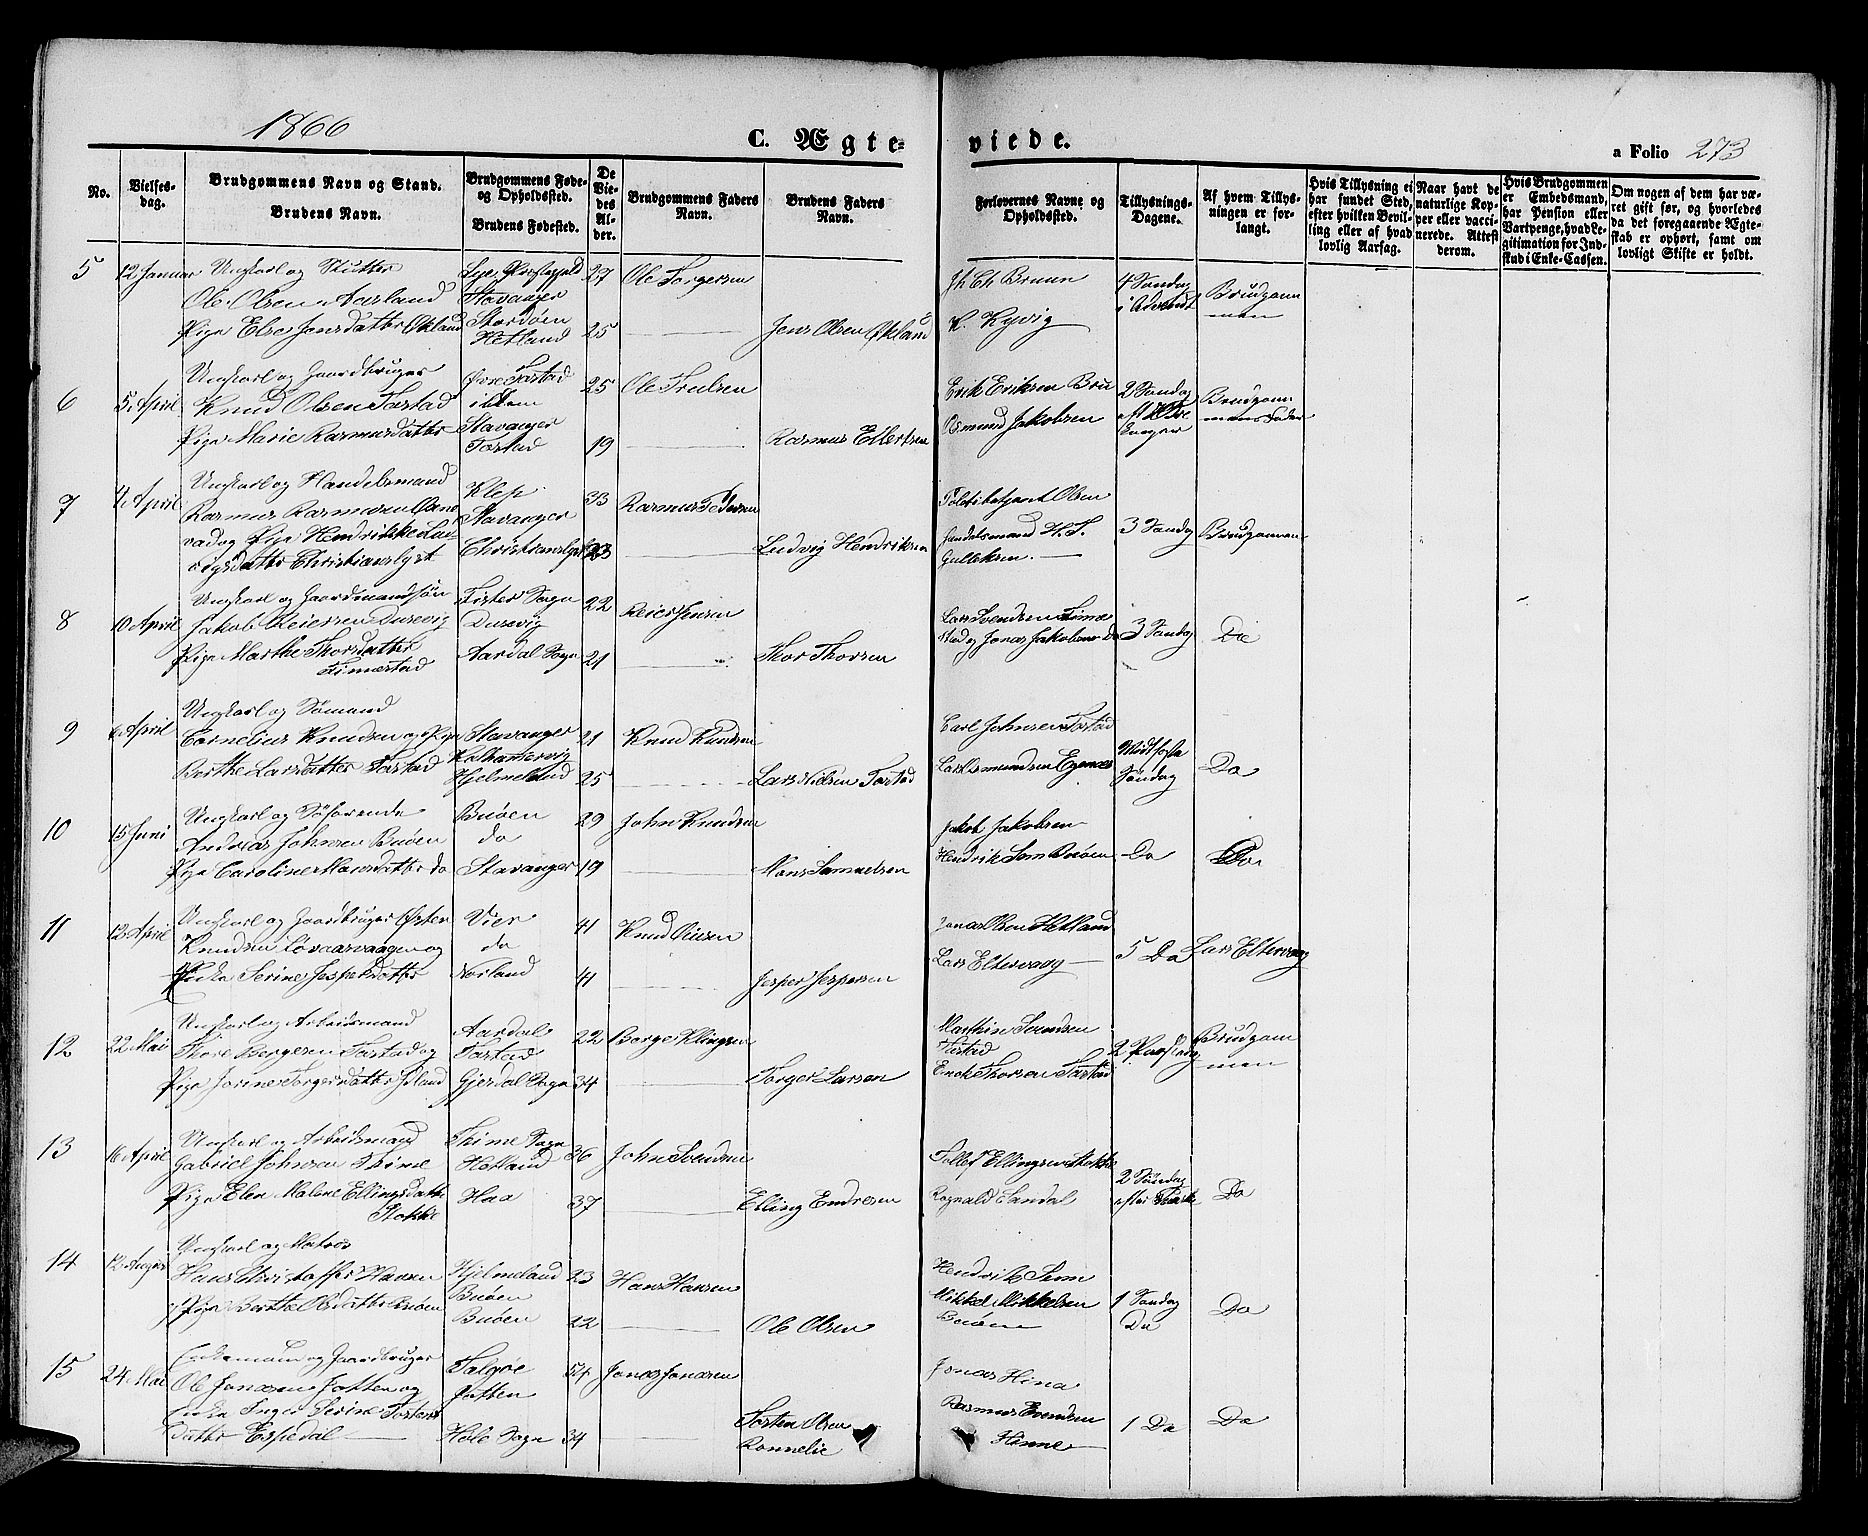 1866
C. Ægte-
viede.
a Folio 273
No.
Vielses-
dag.
Brudgommens Navn og Stand.
Brudens Navn.
Brudgommens Føde-
og Opholdsted.
Brudens Fødested.
De
Vie-
des
Al-
der.
Brudgommens Faders
Navn.
Brudens Faders
Navn.
Forlovernes Navne og
Opholdsted.
Tillysnings-
Dagene.
Af hvem Tillys-
ningen er for-
langt.
Hvis Tillysning ei
har fundet Sted,
efter hvilken Bevil-
ling eller af hvad
lovlig Aarsag.
Naar havt de
naturlige Kop-
per eller vacci-
nerede. Attest
derom.
Hvis Brudgommen
er Embedsmand,
har Pension eller
Vartpenge, hvad Le-
gitimation for Ind-
skud i Enke-Cassen.
Om nogen af dem har væ-
ret gift før, og hvorledes
da det foregaaende Ægte-
skab er ophørt, samt om
lovligt Skifte er holdt.
5 12 Januar Ungkarl og Skutter
Ole Olsen Aasland
Pige Else Jensdatter Økland
Lye Præstegjeld
Stavanger
Stordøen
Hetland
27
25
Ole Torgersen
Jens Olsen Økland
Chr Bruun
K. Kyvig
4 Søndag
i Advendt
Brudgom
men
6 5 April Ungkarl og Gaardbruger
Knud Olsen Tastad
Pige Marie Rasmusdatter
Øvre Tastad
ibidem
Stavanger
Tastad
25
19
Ole Truelsen
Rasmus Ellertsen
Erik Eriksen Bru
Osmund Jakobsen
2 Søndag
Brudgom
mens Fader
7 4 April Ungkarl og Handelsmand
Rasmus Rasmusen
vad og Pige Hendrikke Lud
vigsdatter Christianslyst
Klep
Stavanger
Christianslyst
33
23
Rasmus Pedersen
Ludvig Hendriksen
Politibetjent Olsen
Handelsmand H. T.
Gulleksen
3 Søndag
Brudgommen
8 10 April Ungkarl og Gaardmandssøn
Jakob Reiersen Dusevig
Pige Marthe Thorsdatter
Fister Sogn
Dusevig
Aardal Sogn
22
21
Reier Jensen
Thor Thorsen
Lars Svendsen
Jonas Jakobsen Do
3 Søndag
Do
9 6 April Ungkarl og Sømand
Cornelius Knudsen og Pige
Berthe Larsdatter Tastad
Stavanger
Kalhammervig
Hjelmeland
21
25
Knud Knudsen
Lars Nielsen Tastad
Carl Johnsen Tastad
Lars Osmundsen Egenæs
Midtfaste
Søndag
Do
10 15 Juni Ungkarl og Søfarende
Andreas Johnsen Buøen
Pige Caroline Monsdatter do
Buøen
do
Stavanger
29
19
John Knudsen
Mons Samuelsen
Jakob Jakobsen
Hendrik Søm Buøen
Do
Do
11 12 April Ungkarl og Gaardbruger Østen
Knudsen Løvaasvaagen og
Enke Serine Jespersdatter
Vier
do
Norland
41
41
Knud Olsen
Jesper Jespersen
Jonas Olsen Hetland
Lars Eltervaag
5 Do
Lars Eltervaag
12 22 Mai Ungkarl og Arbeidsmand
Thore Børgesen Tastad og
Pige Jorine Torgersdatter
Aardal
Tastad
Gjesdal Sogn
22
34
Børge Ellingsen
Torger Larsen
Mathias Svendsen
Tastad
Enok Thorsen Tastad
2 Paaskedag
Brudgom
men
13 16 April Ungkarl og Arbeidsmand
Gabriel Johnsen Thime
Pige Elen Malene Ellingsdatter
Stokke
Thime Sogn
Hetland
Haa
36
37
John Svendsen
Elling Endresen
Tollef Ellingsen Stokke
Rognald Sandal
2 Søndag
efter Paaske
Do
14 12 August Ungkarl og Matros
Hans Christoffer Hansen
Pige Berthe Olsdatter Buøen
Hjelmeland
Buøen
Buøen
23
22
Hans Hansen
Ole Olsen
Hendrik Søm
Mikkel Mikkelsen
Buøen
1 Søndag
Do
Do
15 24 Mai Enkemand og Gaardbruger
Ole Jonasen Jatten og
Enke Inger Serine Tostens
Datter Espedal
Talgøe
Jatten
Høle Sogn
54
34
Jonas Jonasen
Tosten Olsen
Rommelie
Jonas Hina
Rasmus Svendsen
Hinne
1 Do
Do